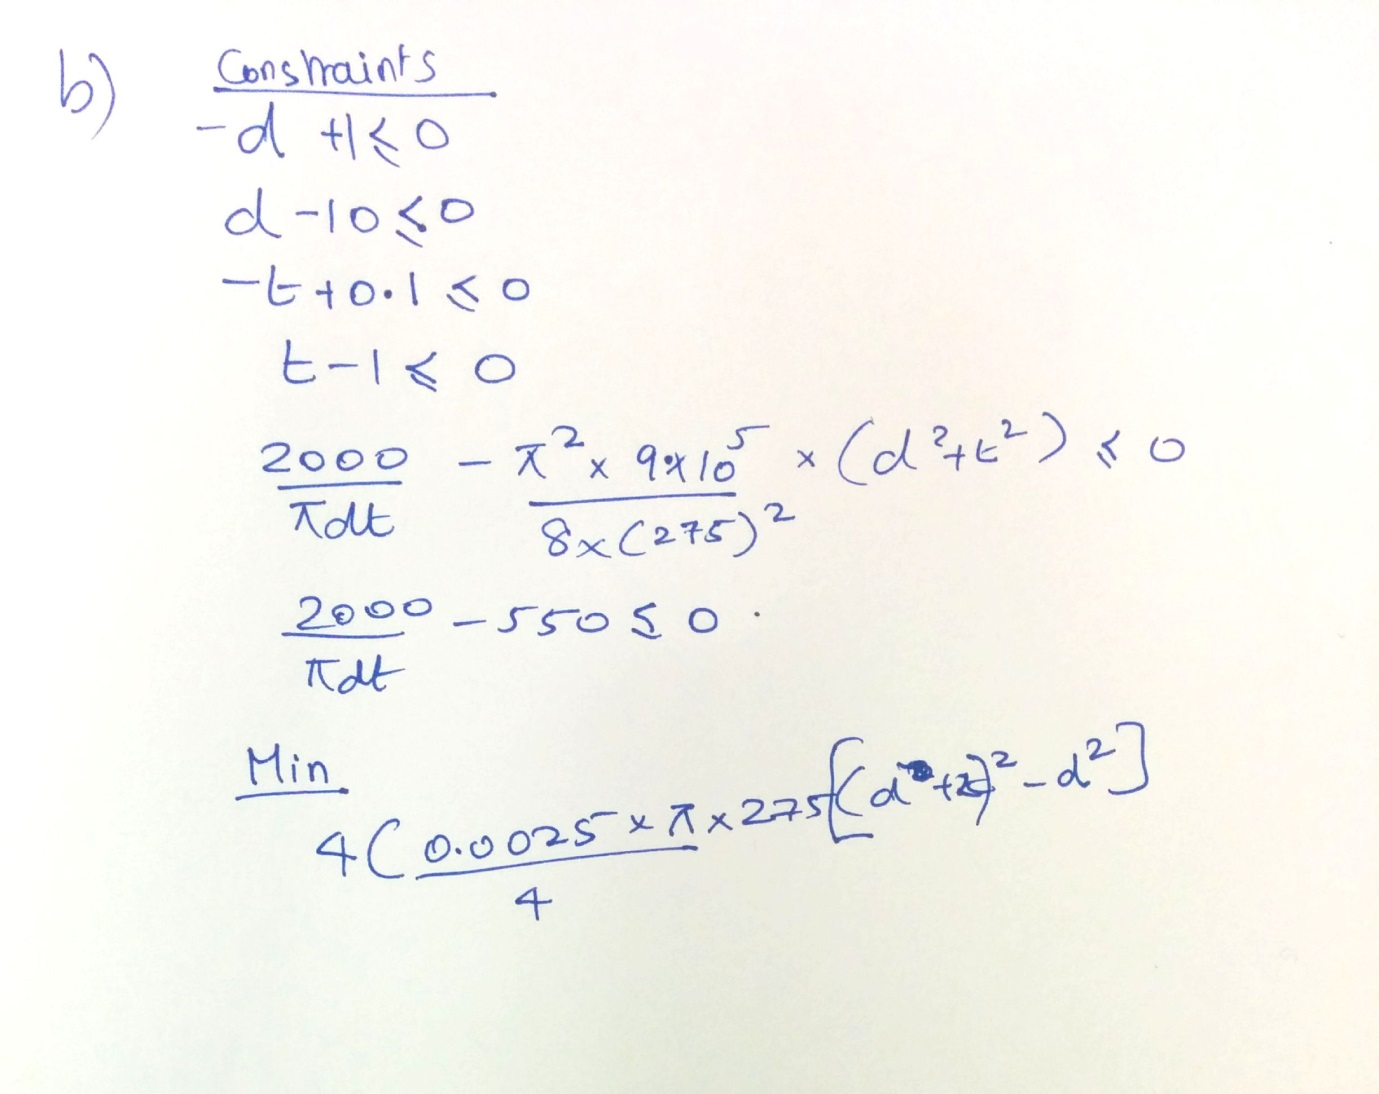 b) Constraints
-d +1 ≤ 0
d -10 ≤ 0
-t +0.1 ≤ 0
t -1 ≤ 0
2000/πdt - π² × 9×10⁵/8×(275)² × (d²+t²) ≤ 0
2000/πdt - 550 ≤ 0.
Min
4(0.0025×π/4 × 275[(d+t)² - d²]